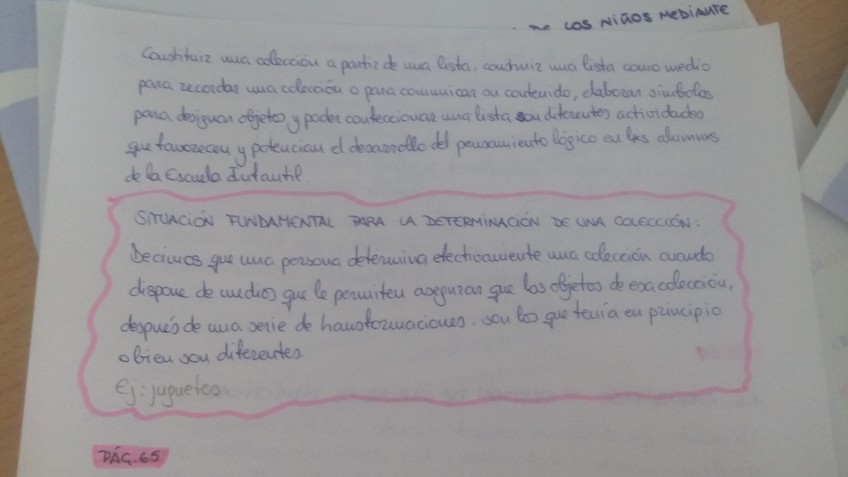 LOS NIÑOS MEDIANTE
Constituir una colección a partir de una lista, construir una lista como medio
para recordar una colección o para comunicar su contenido, elaborar símbolos
para designar objetos y poder confeccionar una lista son diferentes actividades
que favorecen y potencian el desarrollo del pensamiento lógico en los alumnos
de la Escuela Infantil.
SITUACIÓN FUNDAMENTAL PARA LA DETERMINACIÓN DE UNA COLECCIÓN:
Decimos que una persona determina efectivamente una colección cuando
dispone de medios que le permiten asegurar que los objetos de esa colección,
después de una serie de transformaciones, son los que tenía en principio
o bien son diferentes.
Ej: juguetes
PÁG. 65